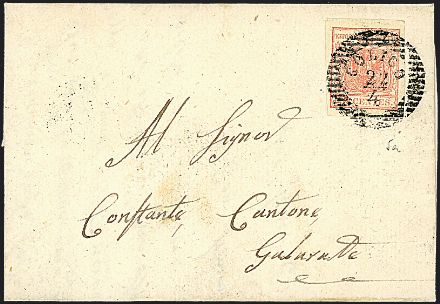 COLICO
24
4
Al Signor
Constante Cantone
Galaratte